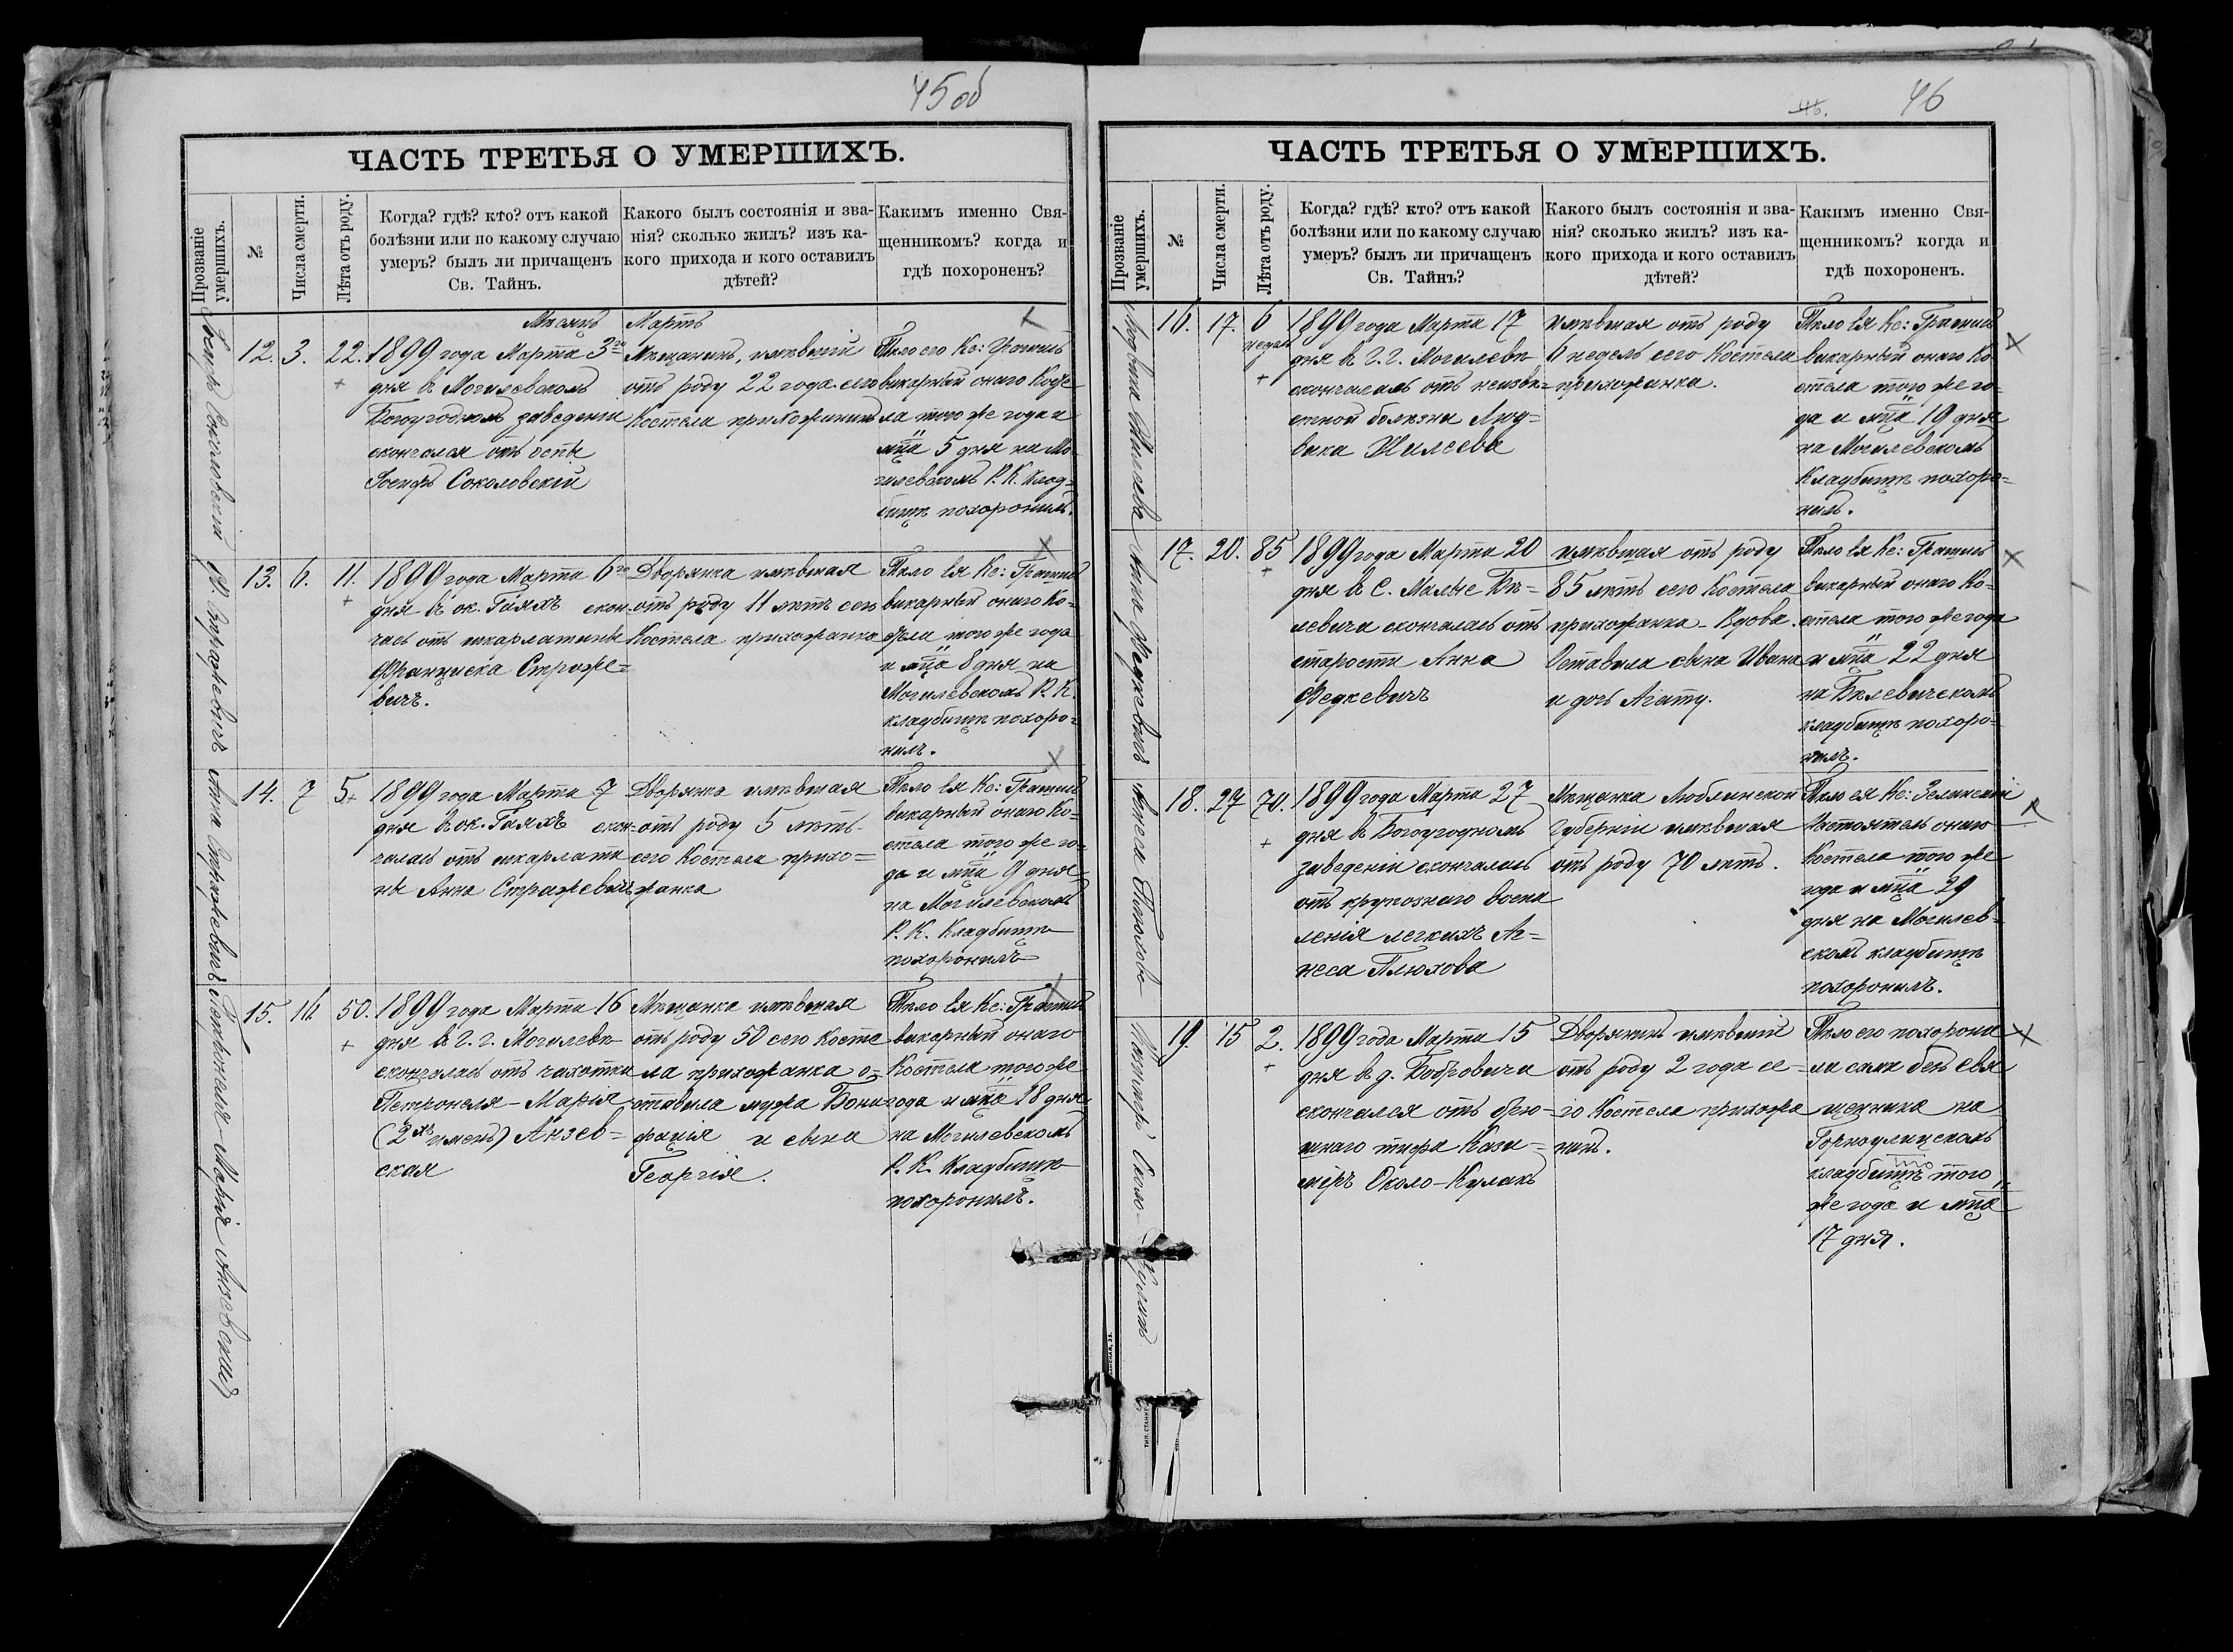 45 об
ЧАСТЬ ТРЕТЬЯ О УМЕРШИХЪ.
Прозваніе умершихъ.
№
Числа смерти.
Лѣта отъ роду.
Когда? гдѣ? кто? отъ какой
болѣзни или по какому случаю
умеръ? былъ ли причащенъ
Св. Тайнъ.
Какого былъ состоянія и зва-
нія? сколько жилъ? изъ ка-
кого прихода и кого оставилъ
дѣтей?
Какимъ именно Свя-
щенникомъ? когда и
гдѣ похороненъ?
Мѣсяцъ Мартъ
Іосифъ Соколовскій
12. 3. 22.
1899 года Марта 3го
дня въ Могилевскомъ
Богоугодномъ заведеніи
скончался отъ оспы
Іосифъ Соколовскій
Мѣщанинъ, имѣвшій
отъ роду 22 года сего
Костела прихожанинъ
Тѣло его Кс:
викарный онаго Косте
ла того же года и
мца 5 дня на Мо-
гилевскомъ Р. К. Клад=
бищѣ похоронилъ.
13. 6. 11.
1899 года Марта 6го
дня въ ок. Гаяхъ скон
чась отъ шкарлатины
Франциска Строже=
вичъ.
Дворянка имѣвшая
отъ роду 11 лѣтъ сего
Костела прихожанка
Тѣло Ея Кс:
викарный онаго Ко=
стела того же года
и мца 8 дня на
Могилевскомъ Р. К.
кладбищѣ похоро=
нилъ.
Анна Стражевичъ
14. 7 5
1899 года Марта 7
дня въ ок. Гаяхъ скон-
чалась отъ шкарлати
ны Анна Стражевичъ
Дворянка имѣвшая
отъ роду 5 лѣтъ-
сего Костела прихо=
жанка
Тѣло Ея Кс:
викарный онаго Ко=
стела того же го-
да и мца 9 дня
на Могилевскомъ
Р. К. Кладбищѣ
похоронилъ
Петронеля Марія Анзевская
15. 16. 50.
1899 года Марта 16
дня въ Г. г. Могилевѣ
скончалась отъ чахотки
Петронеля-Марія
(2хъ именъ) Анзев=
ская
Мѣщанка имѣвшая
отъ роду 50 сего Косте
ла прихожанка о-
ставила мужа Бони
фація и сына
Георгія.
Тѣло Ея Кс:
викарный онаго
Костела того же
года и мца 18 дня
на Могилевскомъ
Р. К. Кладбищѣ
похоронилъ.
46. 46
ЧАСТЬ ТРЕТЬЯ О УМЕРШИХЪ.
Прозваніе умершихъ.
№
Числа смерти.
Лѣта отъ роду.
Когда? гдѣ? кто? отъ какой
болѣзни или по какому случаю
умеръ? былъ ли причащенъ
Св. Тайнъ?
Какого былъ состоянія и зва-
нія? сколько жилъ? изъ ка-
кого прихода и кого оставилъ
дѣтей?
Какимъ именно Свя-
щенникомъ? когда и
гдѣ похороненъ.
Людвика Шилсева
16. 17. 6 недѣль
1899 года Марта 17
дня въ Г. г. Могилевѣ
скончалась отъ неизвѣ=
стной болѣзни Люд=
вика Шилсева
имѣвшая отъ роду
6 недѣль сего Костела
прихожанка.
Тѣло Ея Кс:
викарный онаго Ко
стела того же го-
да и мца 19 дня
на Могилевскомъ
Кладбищѣ похоро=
нилъ.
Анна Федкевичъ
17. 20. 85
1899 года Марта 20
дня въ С. Малые Бѣ=
левичи скончалась отъ
старости Анна
Федкевичъ
имѣвшая отъ роду
85 лѣтъ сего Костела
прихожанка- Вдова.
Оставила сына Ивана
и дочь Агату.
Тѣло Ея Кс:
викарный онаго Ко=
стела того же года
и мца 22 дня
на Бѣлевичскомъ
кладбищѣ похоро=
нилъ.
Агнеса Плюхова
18. 27 70.
1899 года Марта 27
дня въ Богоугодномъ
заведеніи скончалась
отъ крупознаго воспа
ленія легкихъ Аг=
неса Плюхова
Мѣщанка Люблинской
Губерніи имѣвшая
отъ роду 70 лѣтъ.
Тѣло ея Кс: Зелинскій
Настоятель онаго
Костела того же
года и мца 29
дня на Могилев=
скомъ кладбищѣ
похоронилъ.
19. 15 2.
1899 года Марта 15
дня въ д. Бобровичи
скончался отъ брю=
шнаго тифа Кази=
міръ Около-Кулакъ
Дворянинъ имѣвшій
отъ роду 2 года се=
го Костела прихожа
нинъ.
Тѣло его похорони
ли сами безъ свя
щенника на
Горноулицскомъ
кладбищѣ того
же года и мца
17 дня.